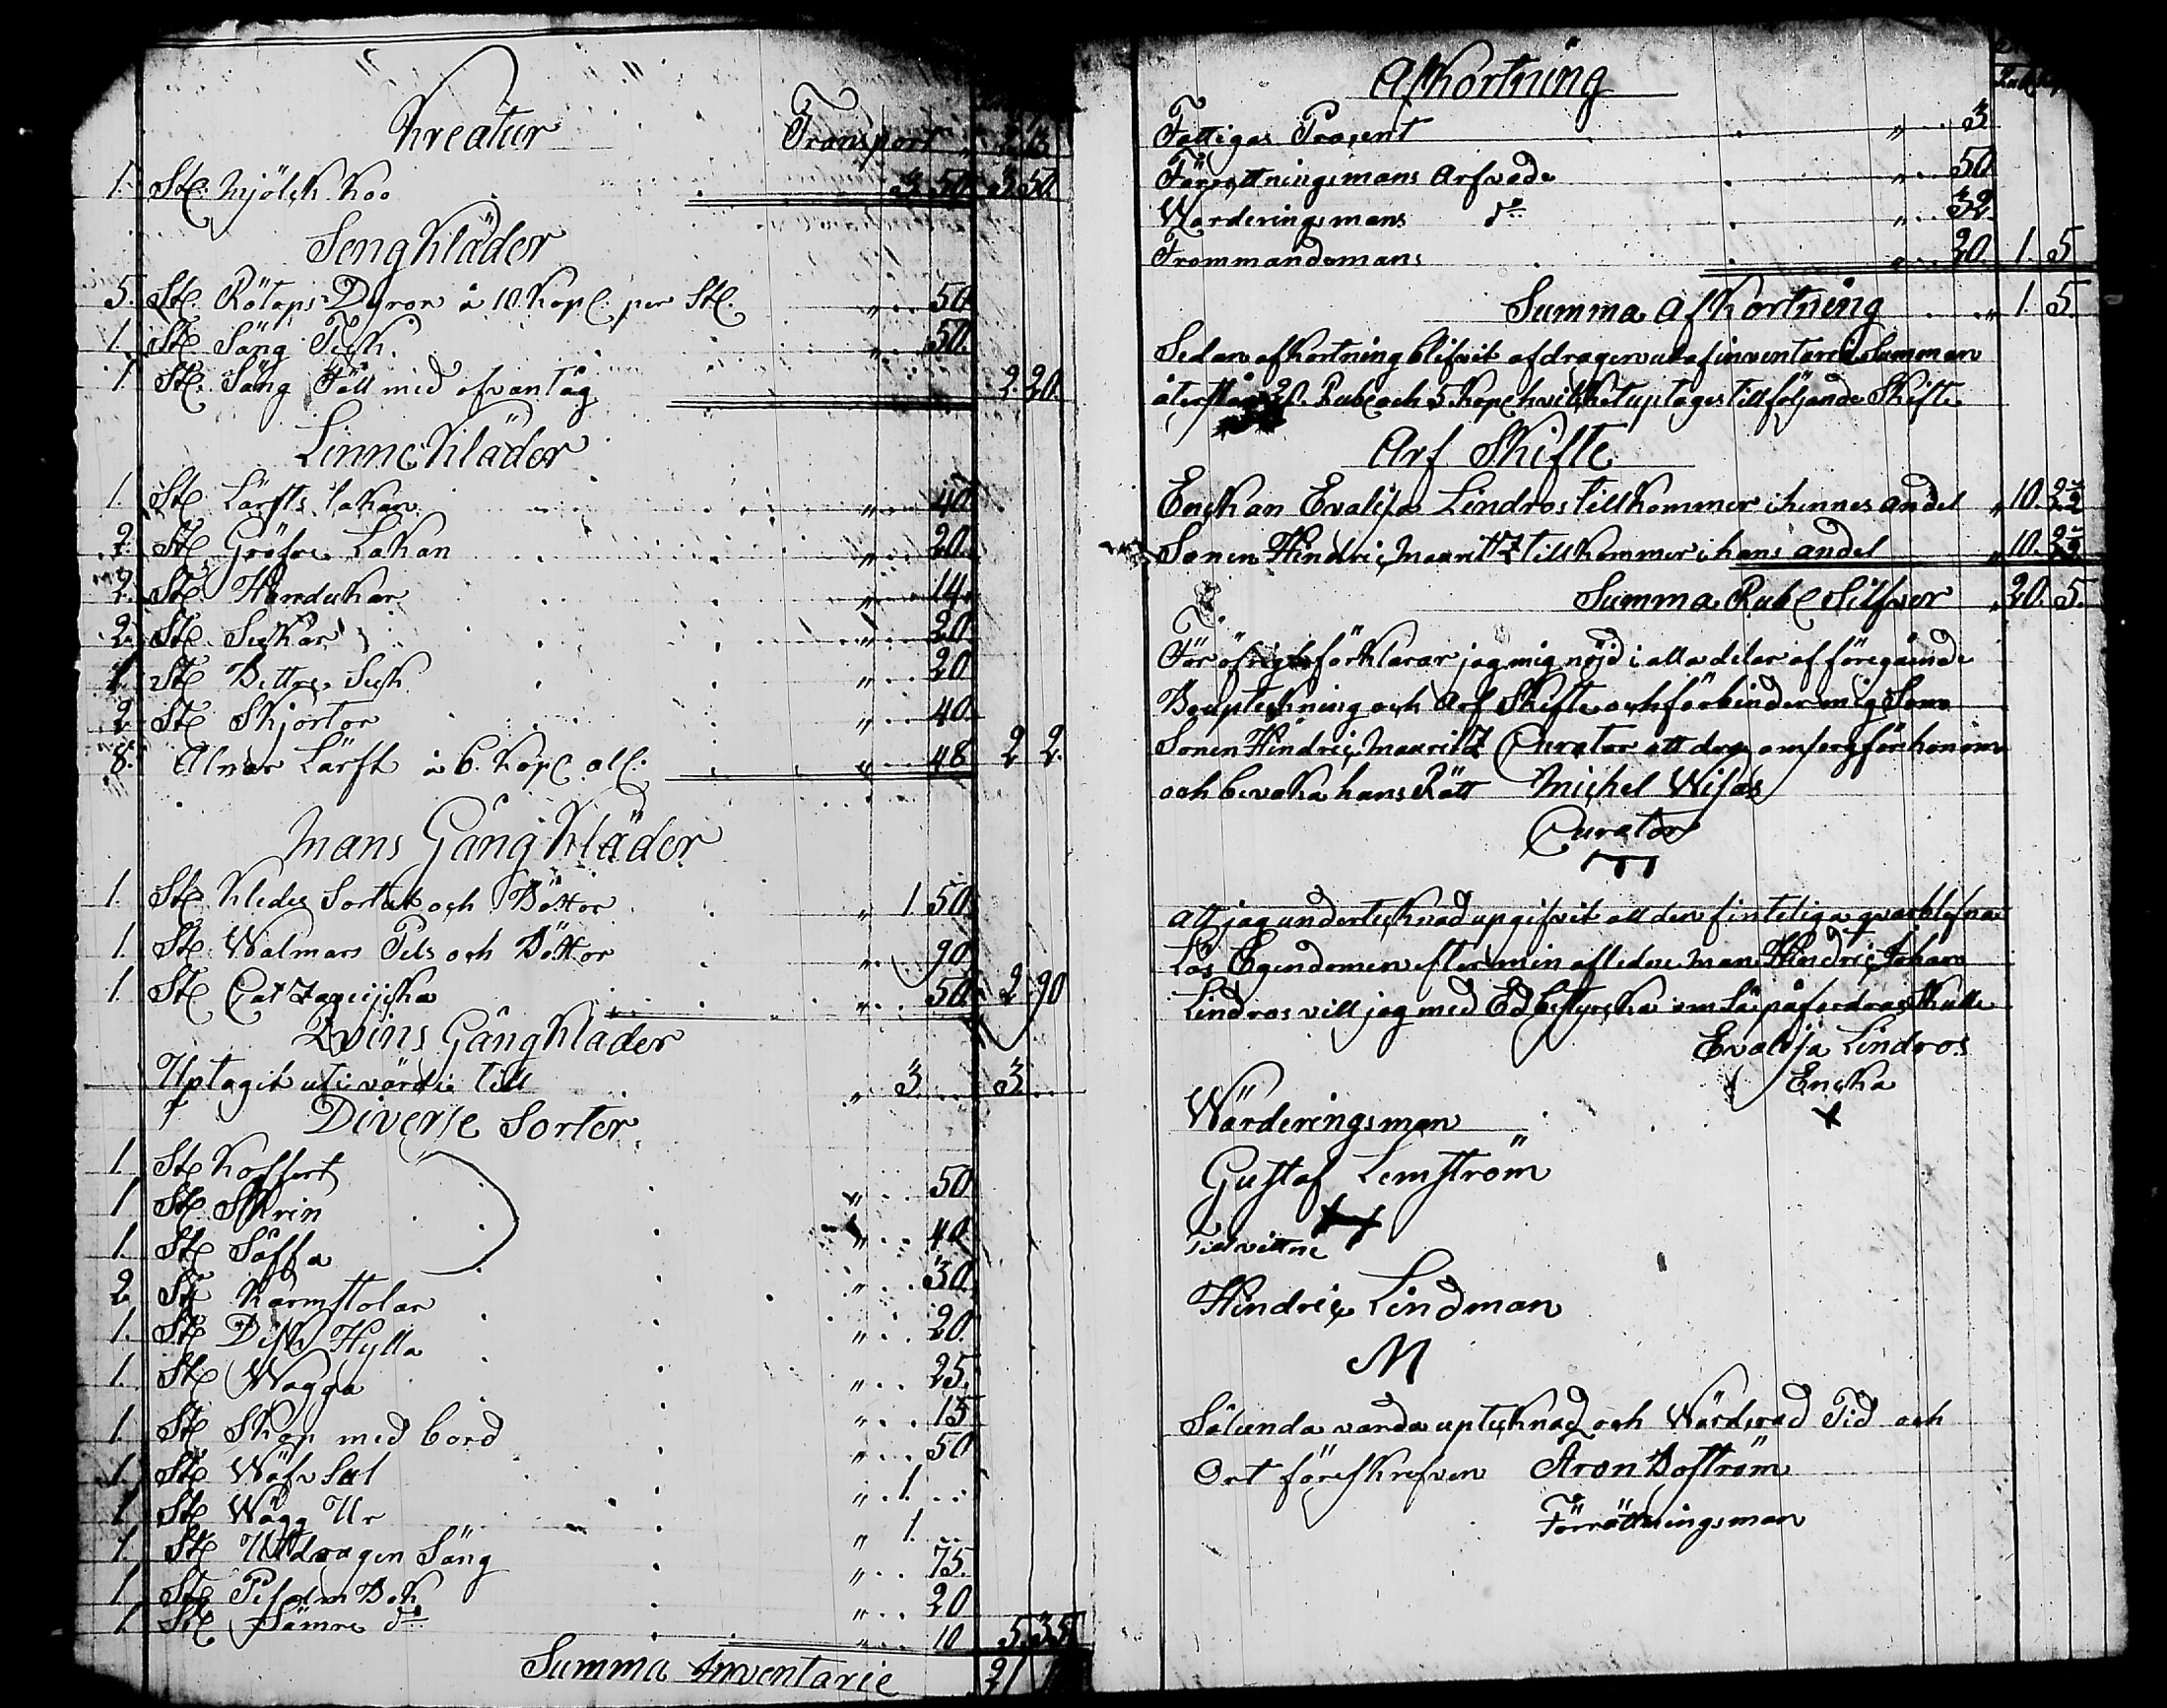 Kreatur Transport 2 13
1. St: Mjölck Koo 3 50. 3 50.
Sengkläder
5. St: Rötaps Dynor à 10. Kop: per St: " 50.
1. St: Säng Teck " 50.
1 St: Säng Fäll med ofvantåg 2. 20.
Linnekläder
1. St: Lärfts Lakan " 40.
2. St: Gröfre Lakan " 20.
2. St: Handukar " 14.
2. St: Seckar " 20.
1. St: Bettre Seck " 20
2. St: Skjortor " 40.
8. Alnar Lärft à 6. Kop: al: " 48 2 2.
Mans Gångkläder
1. St: Kledes Sortut och Böxor " 1. 50.
1. St: Walmars Pels och Böxor " 90
1. St: " 50. 2 90
Qvins Gångkläder
Uptagit uti värde till " 3. .. 3. ..
Diverse Sorter
1. St: Koffert " 50
1 St: Skrin " 40.
1. St: Soffa " 30.
2. St: Karmstolar " 20.
1. St: Disk Hylla " 25.
1. St: Wagga " 15
1. St: Skop med bord " 50
1. St: Wäfv Sal " 1. ..
1 St: Wägg Ur " 1. ..
1. St: Utdragen Säng " 75.
1 St: Psalm Bok " 20
1 St: Sämre do " 10 5. 35
Summa Inventarie 21
Afkortning
Fattigas Procent " 3
Förrettningsmans Arfvode " 50
Warderingsmans do " 32.
Frommandemans " 20. 1. 5
Summa Afkortning " 1. 5.
Sedan afkortning blifvit afdragen utaf inventarie Summan
återstår 20. Rub: och 5 Kop: hvilket uptages till följande Skifte
Arf Skifte
Enckan Evalisa Lindros tillkommer i hennes andel " 10. 2½
Sonen Hindric Mauritz tillkommer i hans andel " 10. 2½
Summa Rub: Silfver " 20. 5.
För öfrigt förklarar jag mig nöjd i alla delar af föregående
Bouptekning och Arf Skifte och förbinder mig Som
Sonen Hindric Mauritz Curator att draga omsorg för honom
och bevaka hans Rätt Michel Wisas
Curator
Att jag undertecknad upgifvit all den fintliga qvarblefna
Lös Egendomen efter min afledne Man Hindric Johan
Lindros vill jag med Ed bestyrcka om Så påfordras Skulle
Evalisa Lindros
Encka
Wärderingsman
Gustaf Lemström
Tillvittne
Hindric Lindman
M
Sålunda vanda uptecknad och Wärderad Tid och
Ort föreskrefven Aron Boström
Förrättningsman